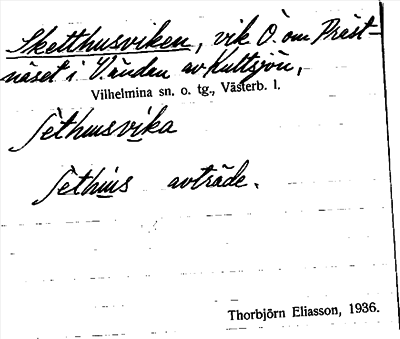 Sketthusviken, vik Ö. om Präst-
näset i V. ändan av Kultsjön,
Vilhelmina sn. o. tg., Västerb. l.
sèthusvika
sèthus avträde.
Thorbjörn Eliasson, 1936.